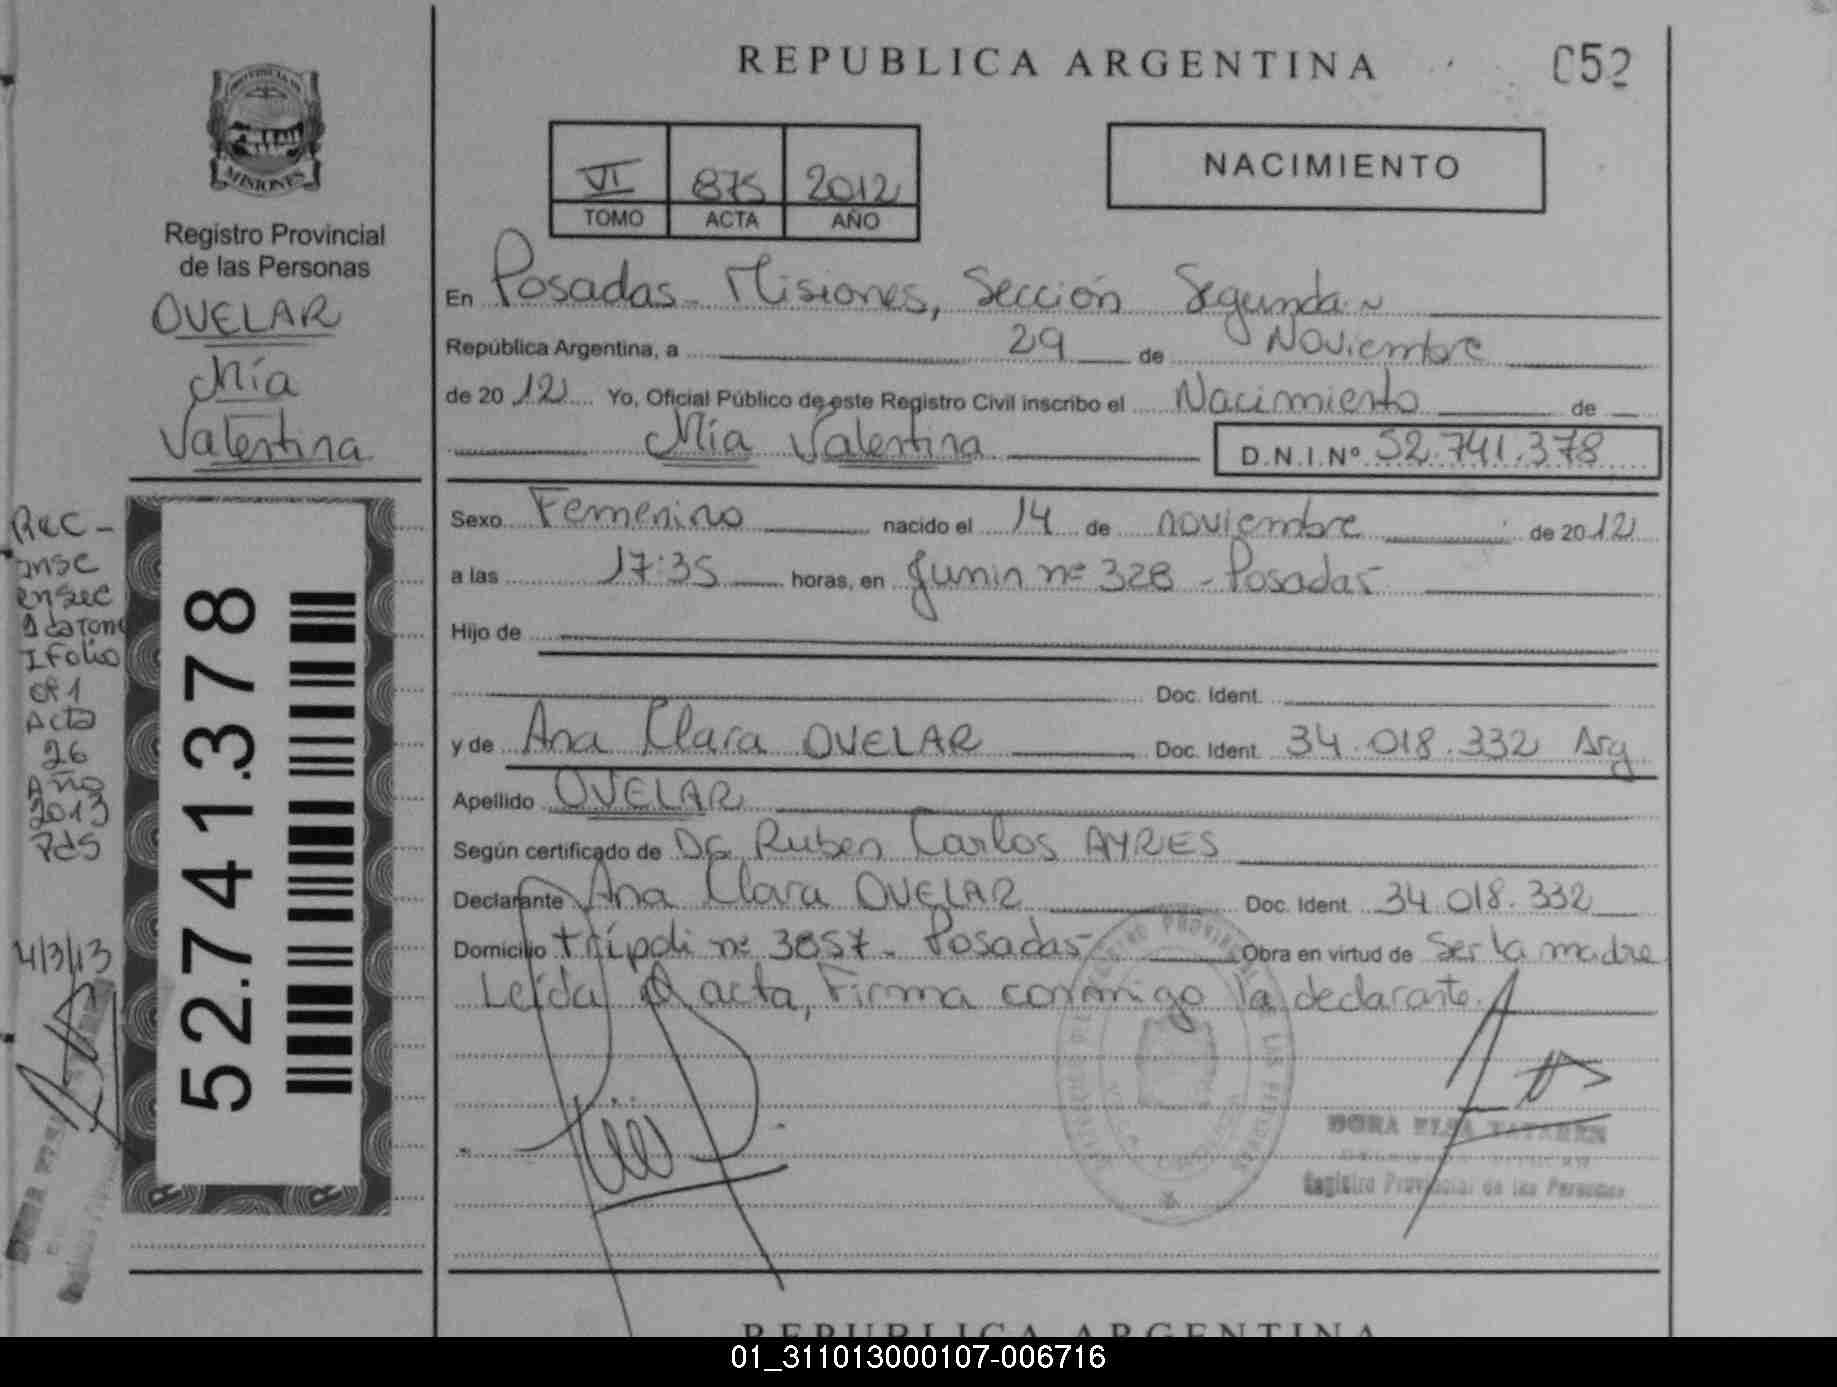 REPUBLICA ARGENTINA
052
PROVINCIA DE
MISIONES
Registro Provincial
de las Personas
OVELAR
Mía
Valentina
VI 875 2012
TOMO ACTA AÑO
NACIMIENTO
En Posadas - Misiones, Sección Segunda
República Argentina, a 29 de Noviembre
de 2012 Yo, Oficial Público de este Registro Civil inscribo el Nacimiento de
Mía Valentina D.N.I.Nº 52.741.378
Sexo Femenino nacido el 14 de noviembre de 2012
a las 17:35 horas, en Junin nº 328 - Posadas -
Hijo de
Doc. Ident.
y de Ana Clara OVELAR Doc. Ident. 34.018.332 Arg
Apellido OVELAR
Según certificado de Dr. Ruben Carlos AYRES
Declarante Ana Clara OVELAR Doc. Ident. 34.018.332
Domicilio trípoli nº 3857 - Posadas - Obra en virtud de ser la madre
Leída el acta, Firma conmigo la declarante.
Rec -
insc
en sec
1ca Tomo
I Folio
Acta
26
Año
2013
Pds
4/3/13
52.741.378
DORA ELSA
Registro Provincial de las Personas
REPUBLICA ARGENTINA
01_311013000107-006716